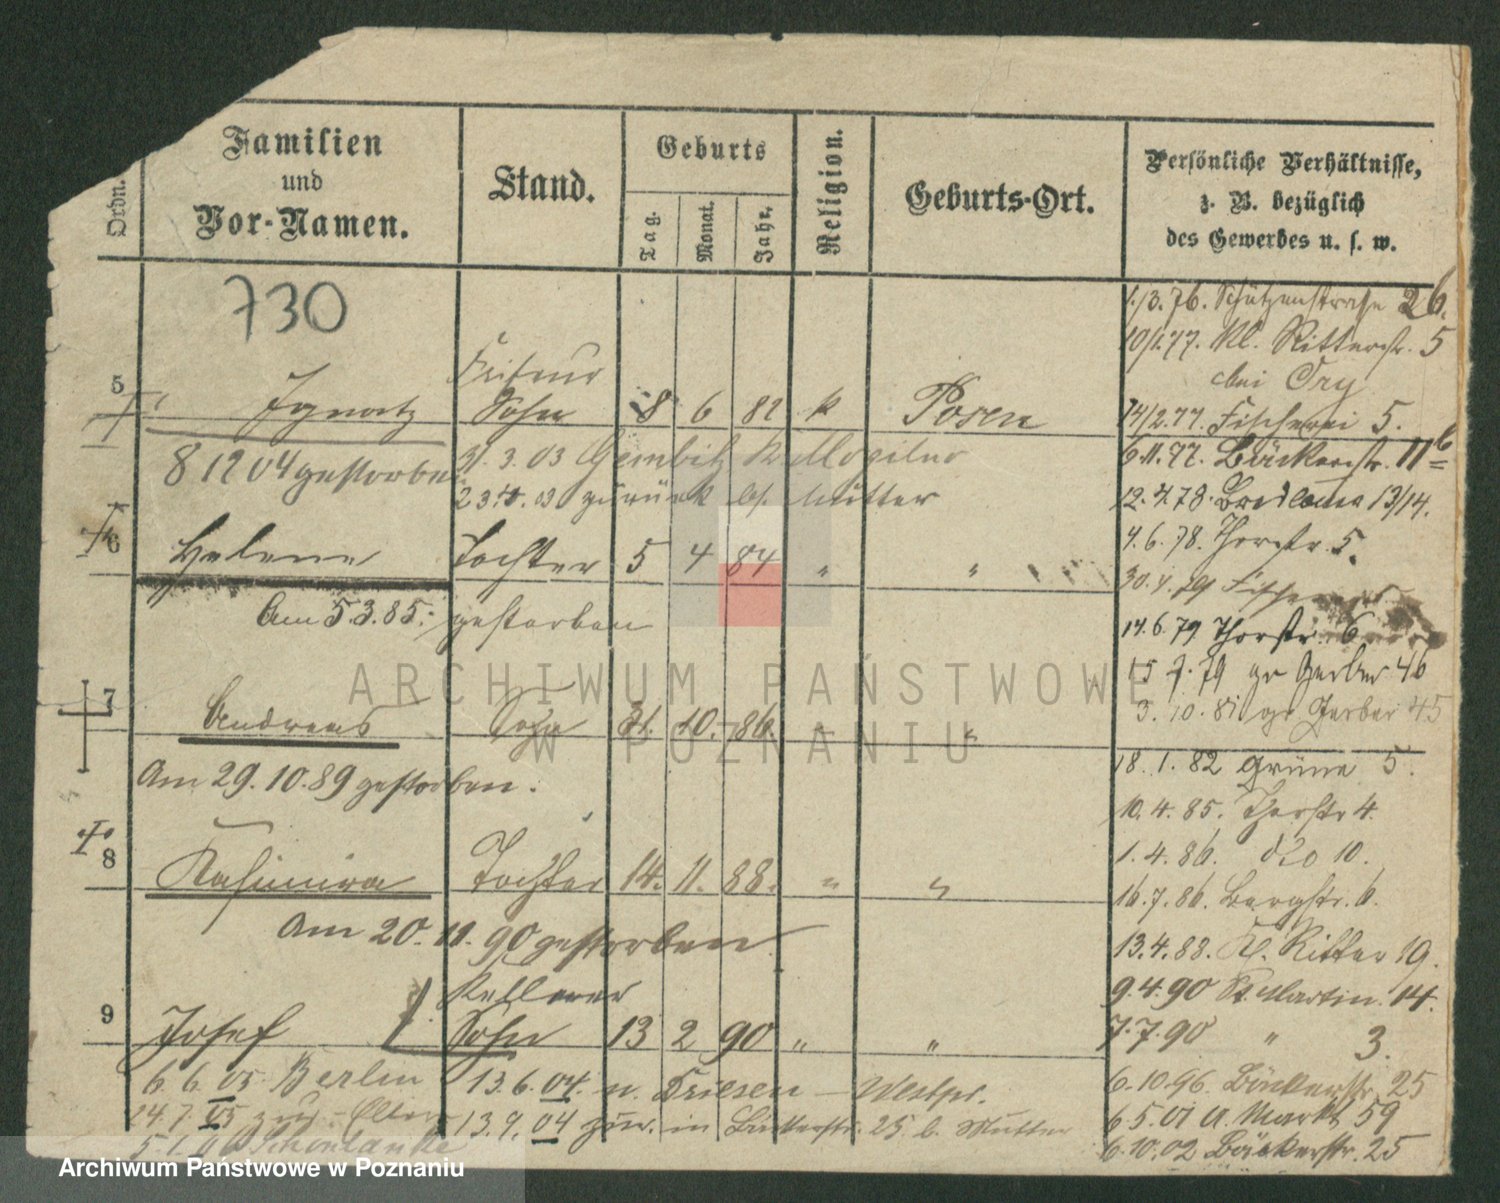 Ordn.
Familien
und
Vor-Namen.
Stand.
Geburts
Tag.
Monat.
Jahr.
Religion.
Geburts-Ort.
Persönliche Verhältnisse,
z. B. bezüglich
des Gewerbes u. s. w.
730
1./3.76. Schützenstrasse 26.
10/1.77. Kl. Ritterstr. 5
bei Cry
Friseur
5 Ignatz Sohn 8 6 82 k Posen
14/2.77. Fischerei 5.
8 12 04 gestorben
31.3.03 Gembitz Kr Mogilno
6.11.77. Bäckerstr. 11b
23. 03 zurück bf. Mutter
12.4.78. 13/14.
4.6.78. Thorstr. 5.
6 Helene Tochter 5 4 84 " "
Am 5.3.85. gestorben
14.6.79 Thorstr. 6
15 7.79 gr Gerber 46
3.10.81 gr. Gerber 45
7 Andreas Sohn 31. 10. 86. " "
18.1.82 Grüne 5.
Am 29.10.89 gestorben.
10.4.85. Thorstr 4.
1.4.86. dto 10.
8 Kasimira Tochter 14. 11. 88. " "
16.7.86. Bergstr. 6.
Am 20.11.90 gestorben
13.4.88. Kl. Ritter 19.
Kellner
9.4.90 St. Martin. 14.
9 Josef Sohn 13 2 90 " "
7.7.90 " 3.
6.6.05 Berlin
13.6.04. n. Briesen - Westpr.
6.10.96. Bäckerstr. 25
24.7.05 zur. Eltern
13.9.04 zur. in Bäckerstr. 25 b. Mutter
6 5.01 A. Markt 59
Schönlanke
6.10.02 Bäckerstr. 25
ARCHIWUM PAŃSTWOWE
W POZNANIU
Archiwum Państwowe w Poznaniu